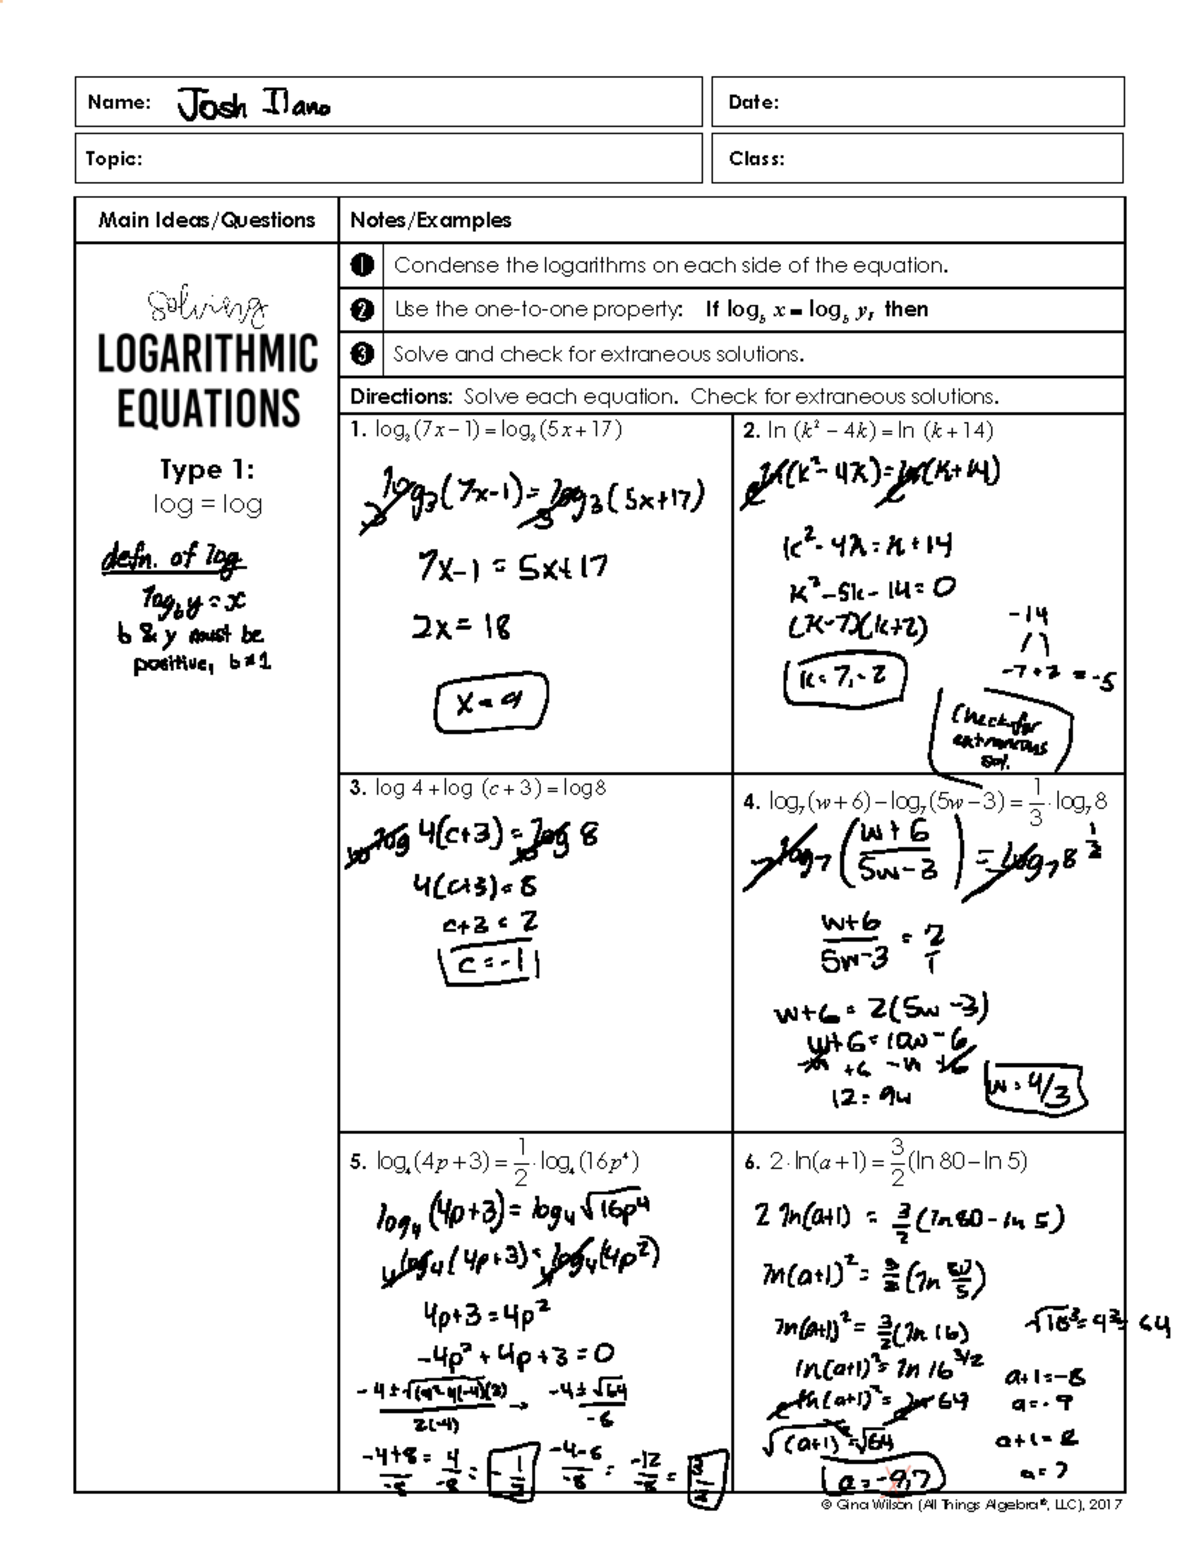 Name: Josh Ilano
Date:
Topic:
Class:
Main Ideas/Questions
Notes/Examples
Solving
LOGARITHMIC
EQUATIONS
Type 1:
log = log
defn. of log
log_b y = x
b & y must be
positive, b ≠ 1
1 Condense the logarithms on each side of the equation.
2 Use the one-to-one property: If log_b x = log_b y, then
3 Solve and check for extraneous solutions.
Directions: Solve each equation. Check for extraneous solutions.
1. log₃(7x − 1) = log₃(5x + 17)
log₃(7x-1) = log₃(5x+17)
7x-1 = 5x+17
2x = 18
x = 9
2. ln (k² − 4k) = ln (k + 14)
ln(k²-4k) = ln(k+14)
k²-4k = k+14
k²-5k-14=0
(k-7)(k+2)
k = 7, -2
-14
-7+2 = -5
Check for
extraneous
sol.
3. log 4 + log (c + 3) = log 8
log 4(c+3) = log 8
4(c+3) = 8
c+3 = 2
c = -1
4. log₇(w + 6) − log₇(5w − 3) = 1/3 · log₇ 8
log₇((w+6)/(5w-3)) = log₇ 8^(1/3)
(w+6)/(5w-3) = 2/1
w+6 = 2(5w-3)
w+6 = 10w-6
-w +6 -w +6
12 = 9w
w = 4/3
5. log₄(4p + 3) = 1/2 · log₄(16p⁴)
log₄(4p+3) = log₄√16p⁴
log₄(4p+3) = log₄(4p²)
4p+3 = 4p²
-4p²+4p+3=0
-4±√64
2(-4)
-4+8 = 4
6. 2 · ln(a + 1) = 3/2 (ln 80 − ln 5)
2 ln(a+1) = 3/2 (ln 80 - ln 5)
ln(a+1)² = 3/2 (ln 80/5)
ln(a+1)² = 3/2 (ln 16)
ln(a+1)² = ln 16^(3/2)
ln(a+1)² = ln 64
√(a+1)² = √64
a = -9, 7
√16³ = 4³ = 64
a+1 = -8
a = -9
a+1 = 8
a = 7
© Gina Wilson (All Things Algebra®, LLC), 2017